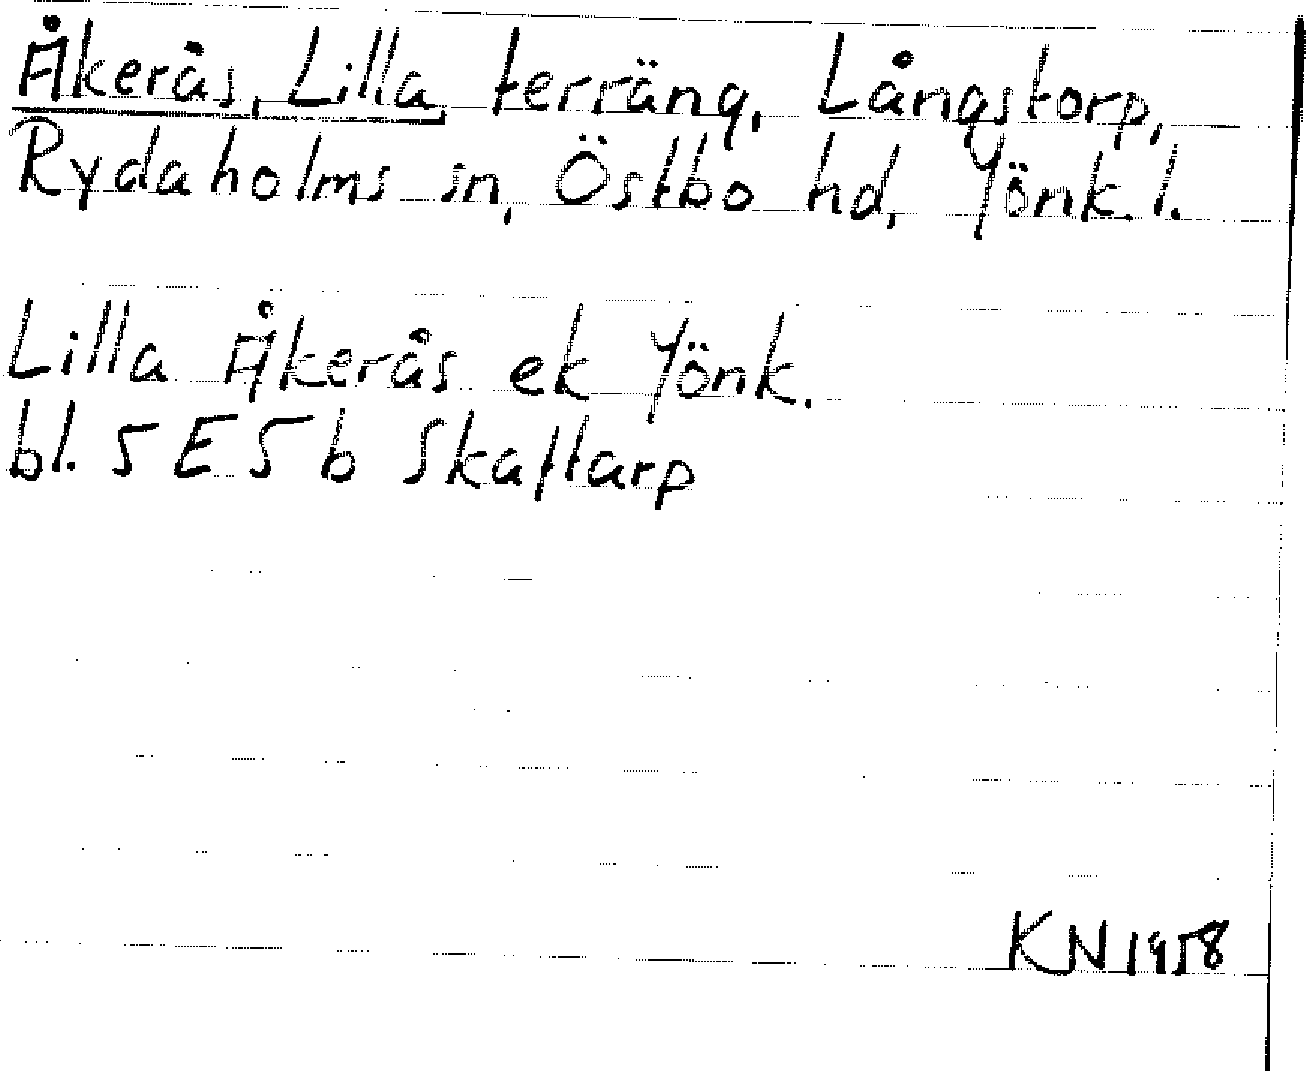 Åkerås, Lilla, terräng, Långstorp,
Rydaholms sn, Östbo hd, Jönk. l.
Lilla Åkerås ek Jönk.
bl. 5 E 5 b Skaftarp
KN 1958